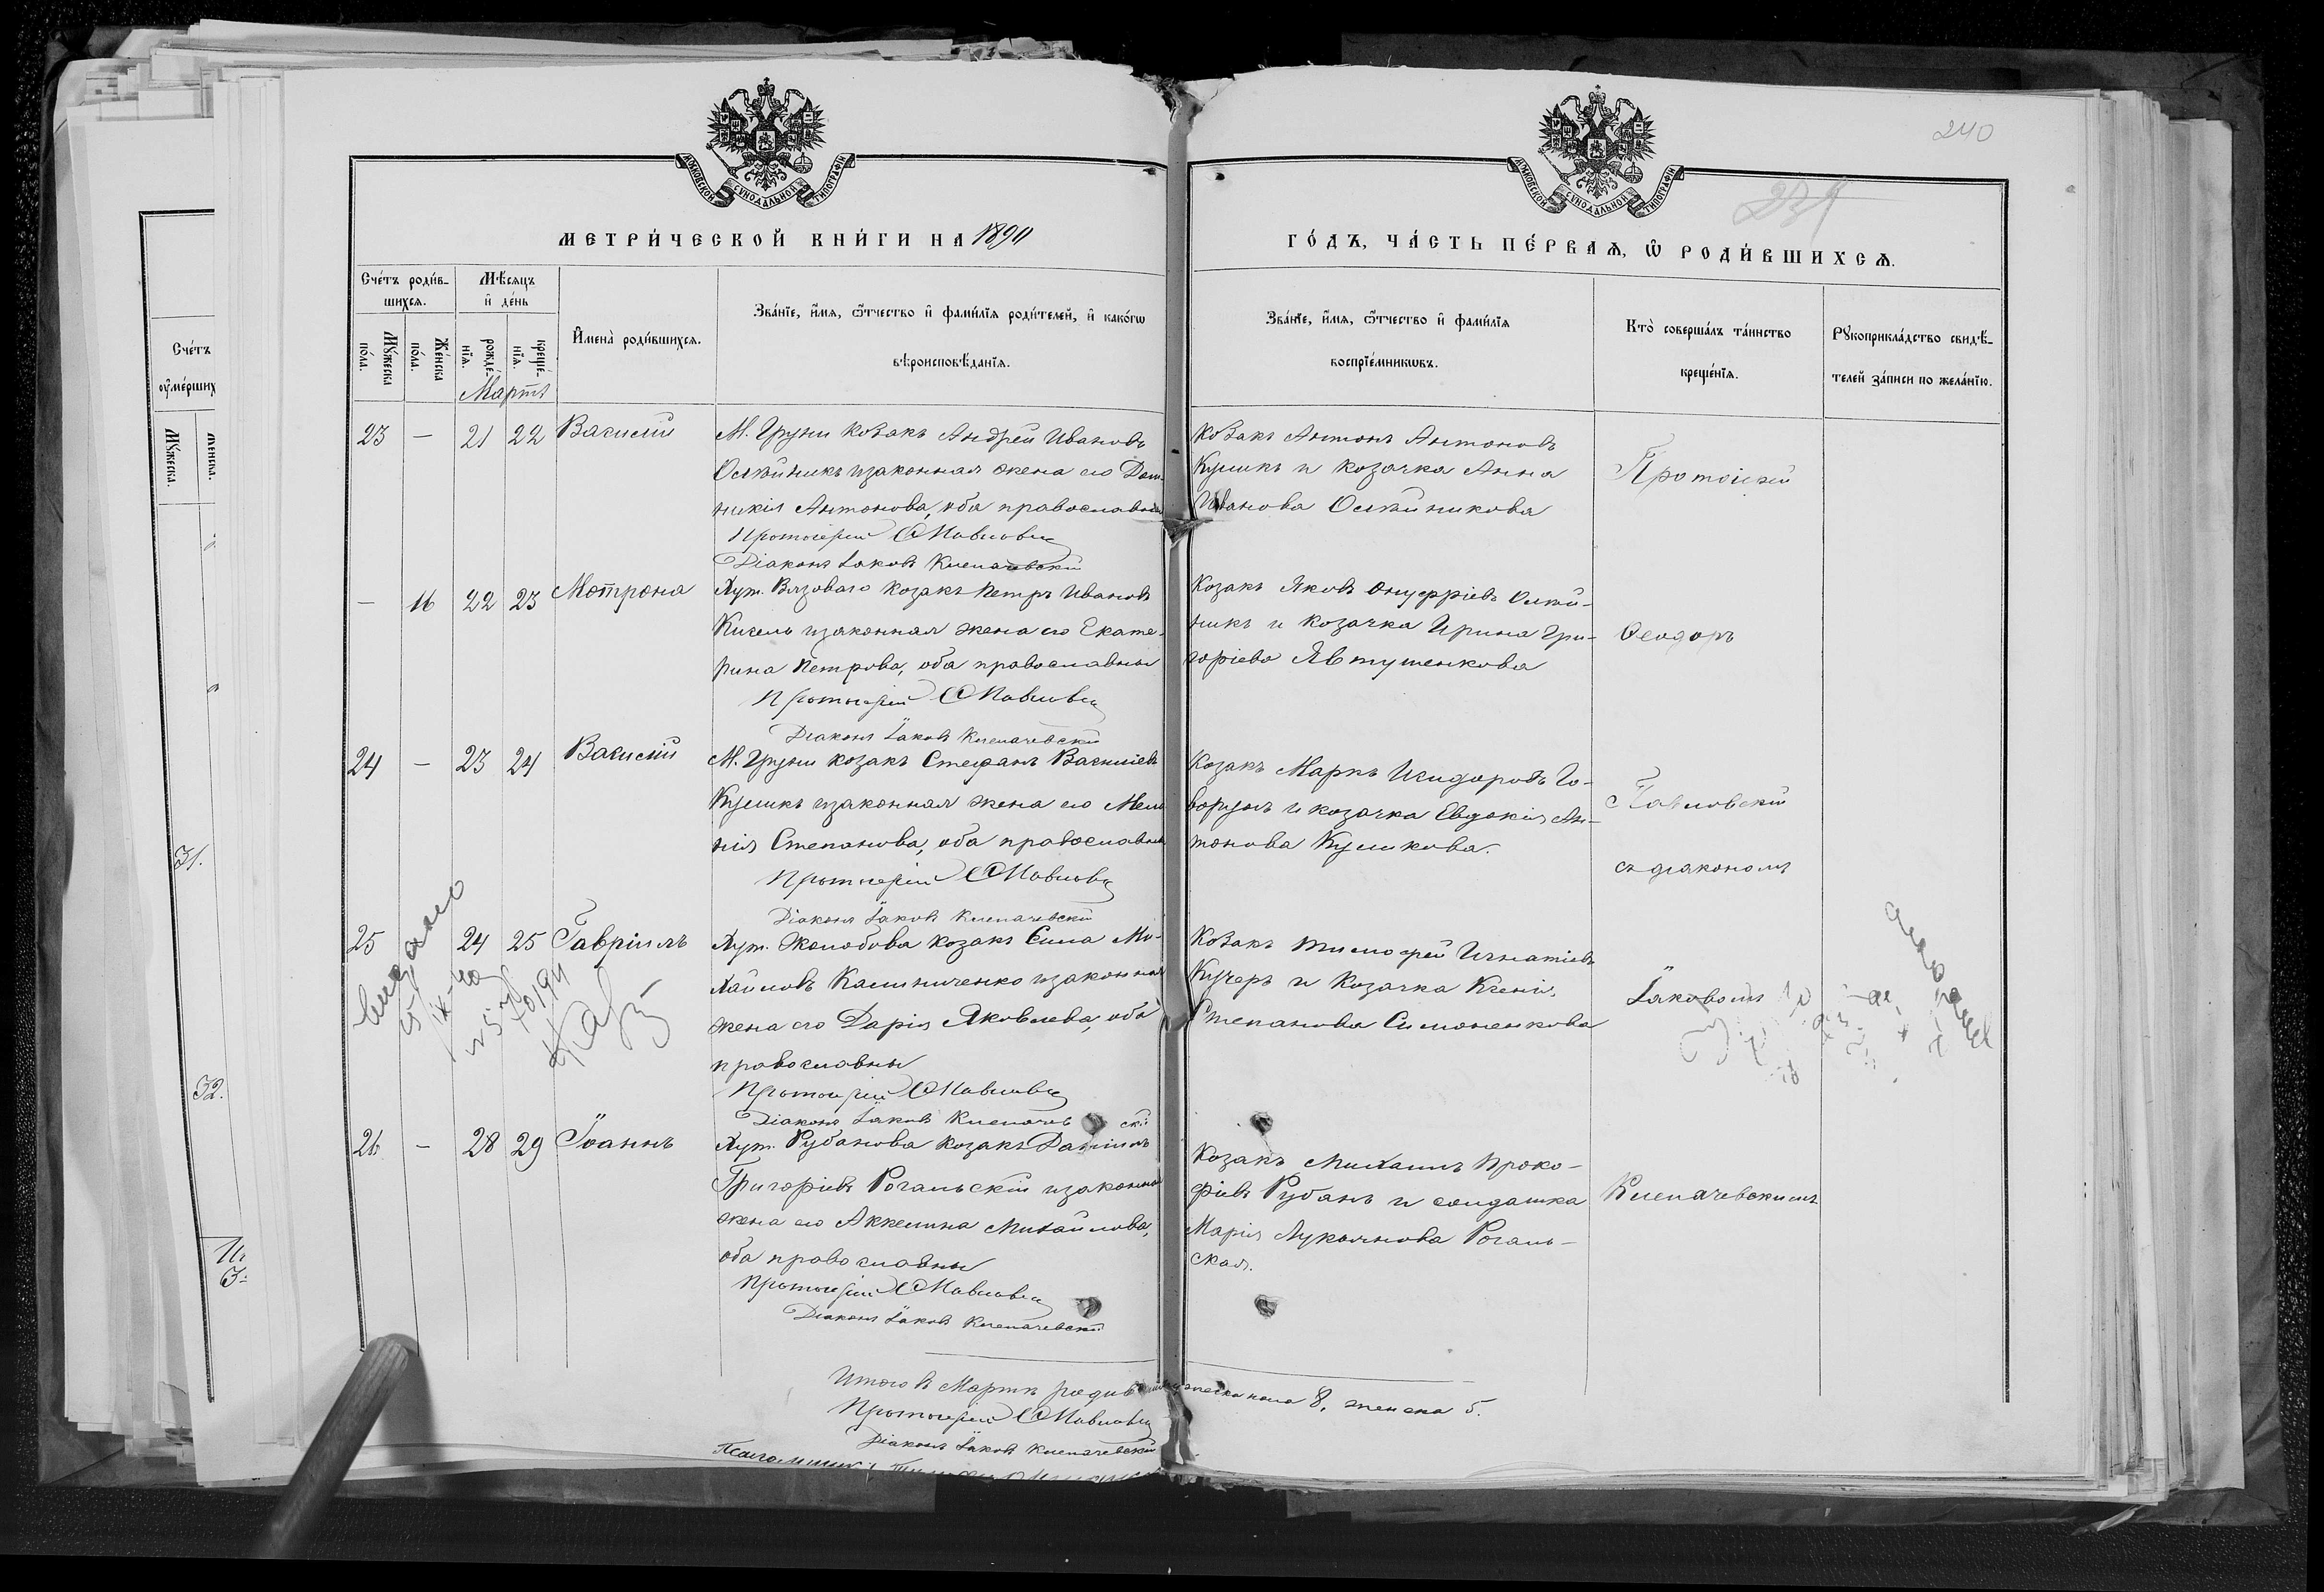 240
МОСКОВСКОЙ СѴНОДАЛЬНОЙ ТИПОГРАФІИ
МОСКОВСКОЙ СѴНОДАЛЬНОЙ ТИПОГРАФІИ
МЕТРИ́ЧЕСКОЙ КНИ́ГИ НА 1890
ГО́ДЪ, ЧА́СТЬ ПЕ́РВАѦ, Ѡ РОДИ́ВШИХСѦ.
Сче́тъ роди́в-
шихсѧ.
Мꙋ́жеска по́ла.
Же́нска по́ла.
Мѣ́сѧцъ
и҆ де́нь
рожде́-
нїѧ.
креще́-
нїѧ.
Мартъ
И҆мена̀ роди́вшихсѧ.
Зва́нїе, и҆́мѧ, ѻ҆́тчество и҆ фами́лїѧ роди́телей, и҆ како́гѡ
вѣроисповѣ́данїѧ.
Зва́нїе, и҆́мѧ, ѻ҆́тчество и҆ фами́лїѧ
воспрїе́мникѡвъ.
Кто̀ соверша́лъ та́инство
креще́нїѧ.
Рꙋкоприкла́дство свидѣ́-
телей за́писи по жела́нїю.
Сче́тъ
ᲂу҆ме́рших
Мꙋ́жеска.
23 — 21 22 Василій
М. Груни козакъ Андрей Ивановъ
Олѣйникъ и законная жена его Дом-
никія Антонова, оба православны
Протоіерей Павловскій
Діаконъ Іаковъ Клепачевскій
Козакъ Антонъ Антоновъ
Куликъ и козачка Анна
Иванова Олѣйникова
Протоіерей
— 16 22 23 Мотрона
Хут. Вязоваго козакъ Петръ Ивановъ
Кисель и законная жена его Екате-
рина Петрова, оба православны
Протоіерей Павловскій
Діаконъ Іаковъ Клепачевскій
Козакъ Яковъ Онуфріевъ Олѣй-
никъ и козачка Ирина Гри-
горіева Явтушенкова
Ѳеодоръ
24 — 23 24 Василій
М. Груни козакъ Стефанъ Василіевъ
Куликъ и законная жена его Мела
нія Степанова, оба православны
Протоіерей Павловскій
Діаконъ Іаковъ Клепачевскій
Козакъ Маркъ Исидоровъ Го-
ворунъ и козачка Евдокія Ан-
тонова Куликова.
Павловскій
съ діакономъ
25 24 25 Гавріилъ
выдано
Хут. Жолобова козакъ Сила Ми-
хайловъ Калиниченко и законная
жена его Дарія Яковлева, оба
православны
Протоіерей Павловскій
Діаконъ Іаковъ Клепачевскій
Козакъ Тимофей Игнатіевъ
Кучеръ и козачка Ксенія
Степанова Симоненкова
Іаковомъ
26 — 28 29 Іоаннъ
Хут. Рубанова козакъ Даніилъ
Григоріевъ Рогальскій и законная
жена его Аккелина Михайлова,
оба православны
Протоіерей Павловскій
Діаконъ Іаковъ Клепачевскій
Козакъ Михаилъ Проко-
фіевъ Рубанъ и солдатка
Марія Лукьянова Рогаль-
ская.
Клепачевскимъ
31.
32.
Итого въ Мартѣ родив мужеска пола 8, женска 5.
Протоіерей Павловскій
Діаконъ Іаковъ Клепачевскій